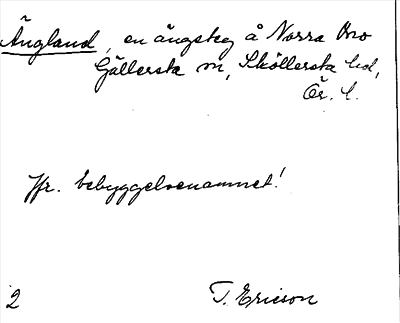 Ängland, en ängsteg å Norra Mo
Gällersta sn, Sköllersta hd,
Ör. l.
Jfr. bebyggelsenamnet!
2
T. Ericson